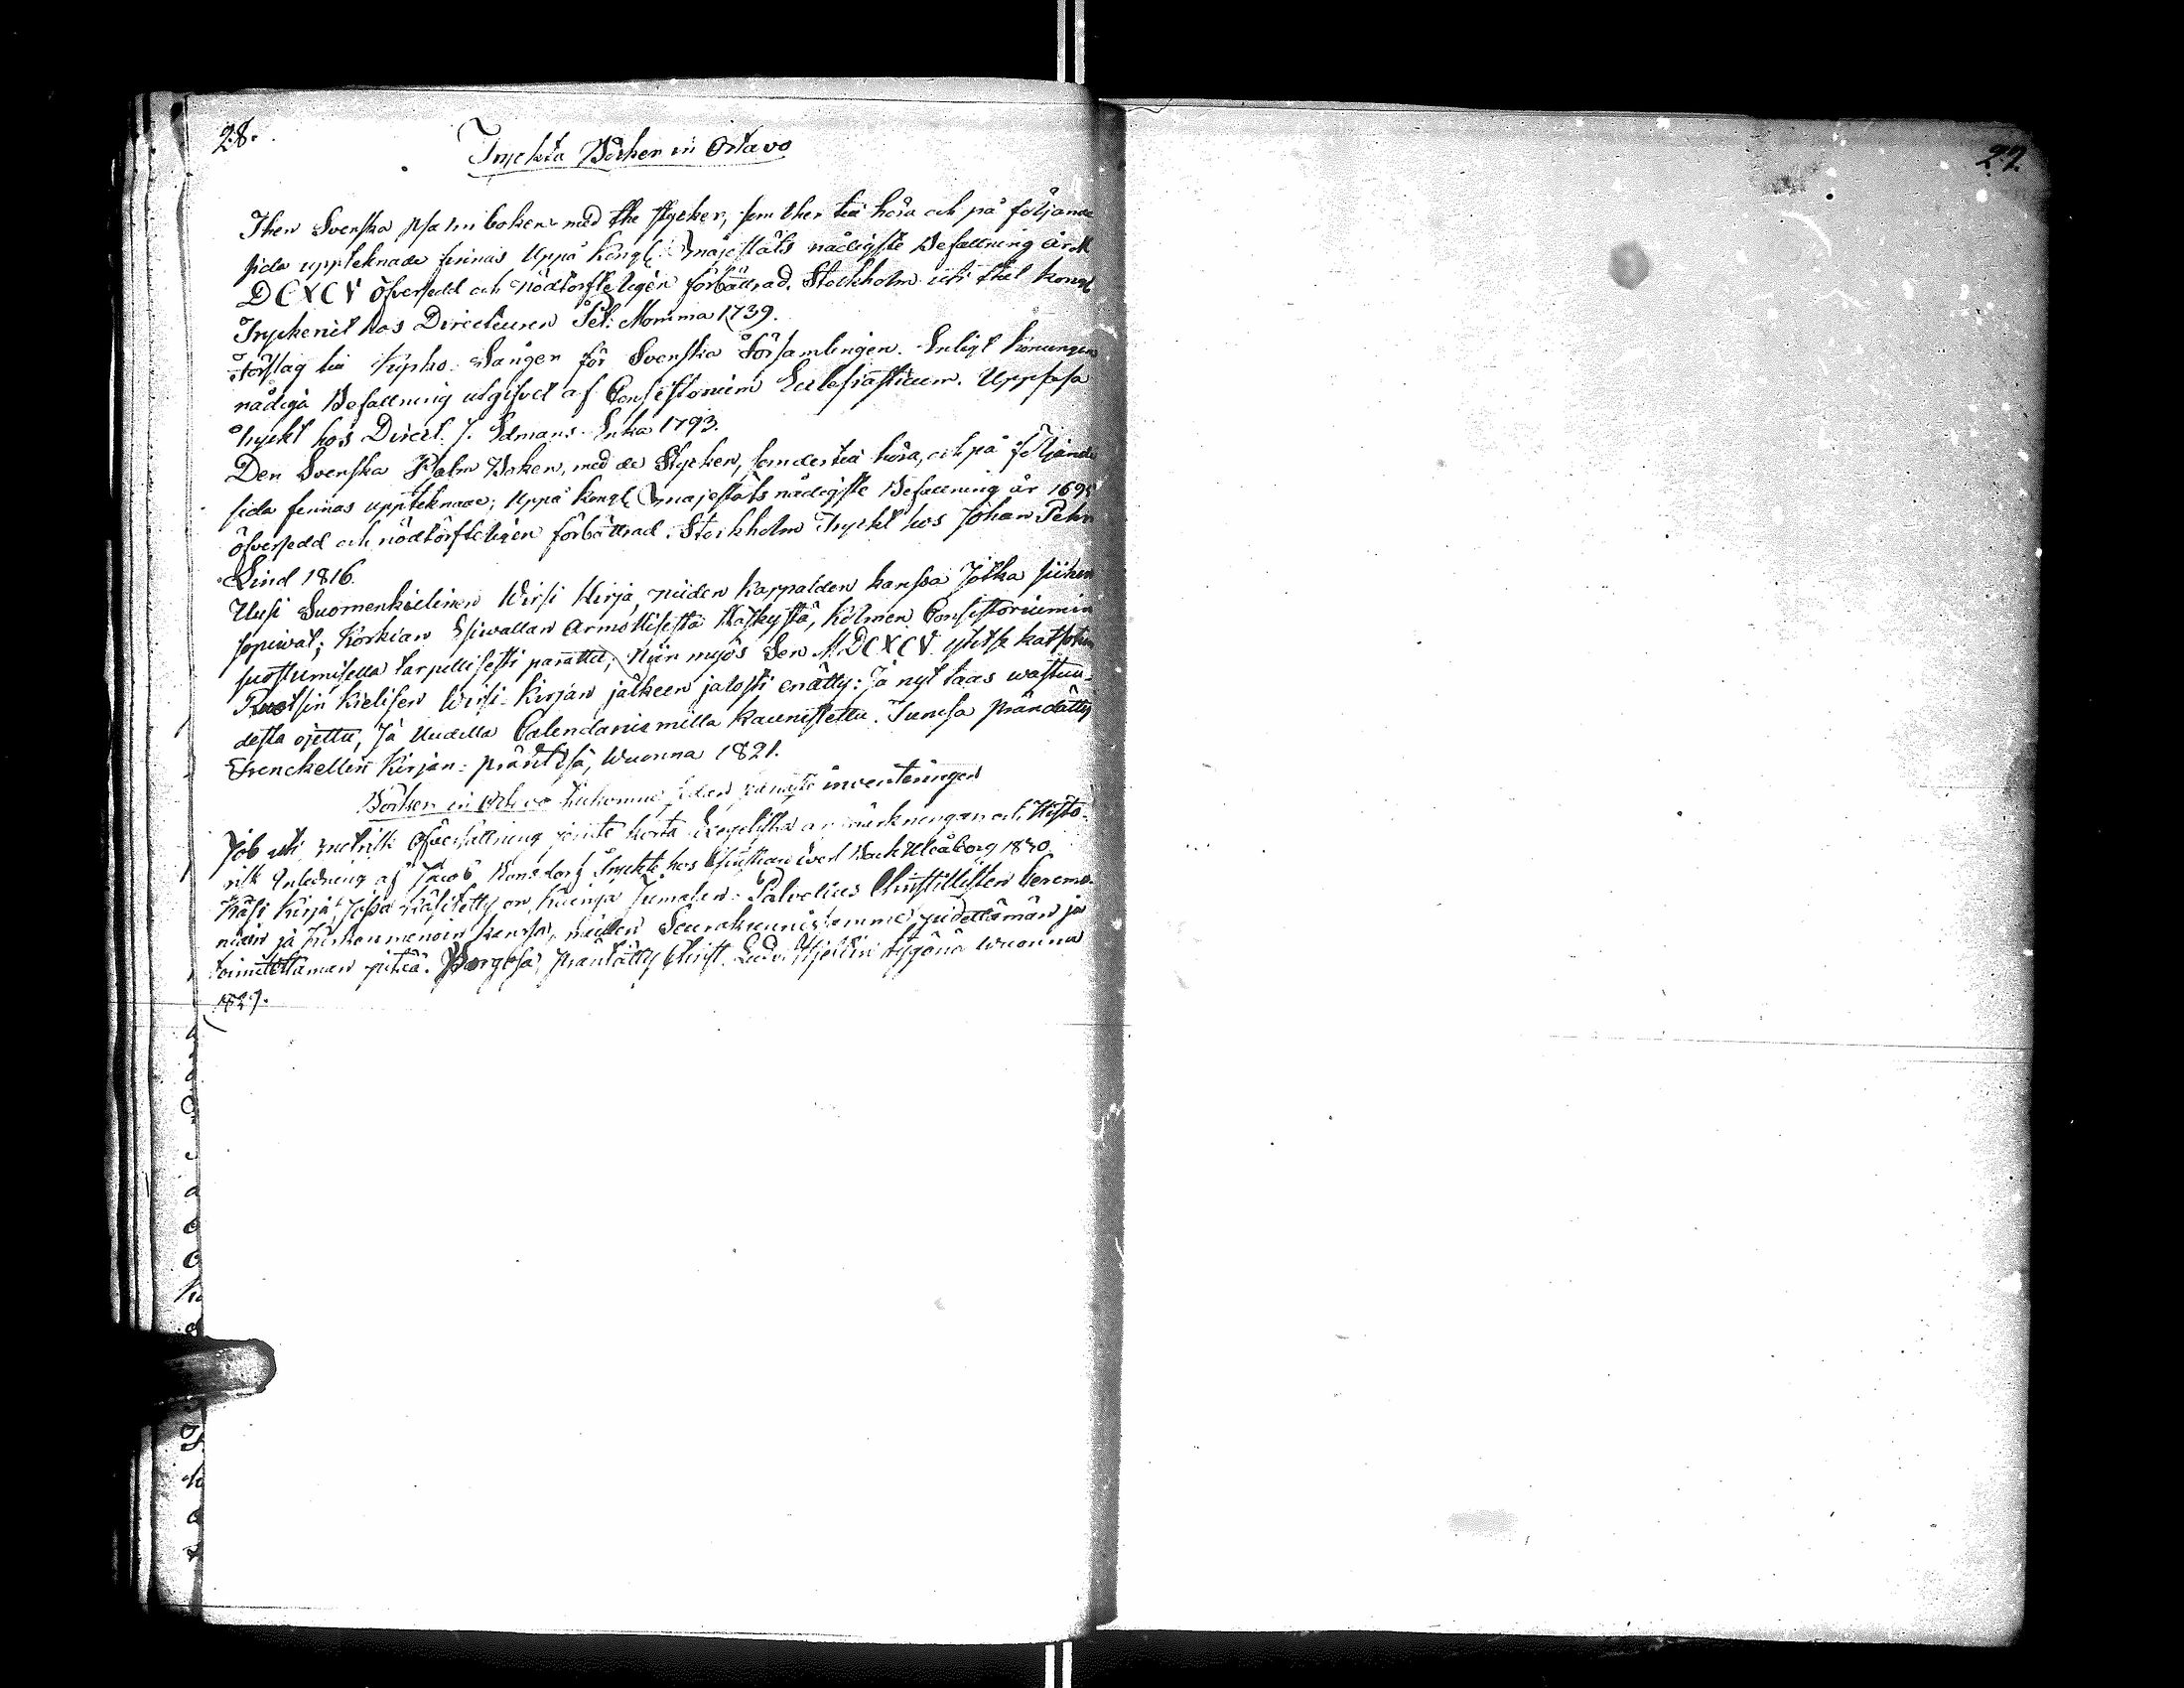 28.
Tryckta Böcker in Octavo
Then Svenska Psalmboken med the stycker, som ther till höra och på följande
sida uppteknade finnas Uppå Kongl. Majestäts nådigste Befallning år M
DCXCV Öfversedd och Nödtorfteligen förbättrad. Stockholm uti thet Kongl
Tryckeriet hos Directeuren Pet: Momma 1739.
Förslag till Kyrko-Sången för Svenska Församlingen. Enligt Konungens
nådiga Befallning utgifvet af Consistorium Eclesiasticum. Uppsala
Tryckt hos Direct. J. Edmans Enka 1793.
Den Svenska Psalm Boken, med de Stycken, som der till höra, och på följande
sida finnas uppteknade; Uppå Kongl Majestäts nådigste Befallning år 1695
öfversedd och nödtörfteligen förbättrad. Stockholm Tryckt hos Johan Pehr
Lind 1816.
Uusi Suomenkielinen Wirsi Kirja, niiden Kappalden kanssa Jotka siihen
sopiwat; Korkian Esiwallan Armollisesta Käskystä, Kolmen Consistoriumin
suostumisella tarpellisesti parattu; Niin myös Sen MDCXCV ylitse katsotun
Ruotsin Kielisen Wirsi-Kirjan jälkeen jalosti enätty: Ja nyt taas wastuu-
desta ojettu, Ja Uudella Calendariumilla kaunistettu. Turusa Prändätty
Frenckellin Kirjan-präntisä, Wuonna 1821.
Böcker in Octavo tilkomne sedan inventeringen
Job uti metrisk Öfversättning jämte korta Exegetiska anmärkningar och Histo-
risk Inledning af Jacob Bonsdorf Tryckte hos Christian Evert Barck Uleåborg 1830
Käsi Kirja, Josa Käsitetty on, kuinga Jumalan-Palvelius Christillisten Ceremo-
niain ja Kirkonmenoin kanssa, meiden Seurakunnissamme pidettämän ja
toimitettaman pitää. Porgosa, präntätty Christ. Ludv. Hjeltin tygönä wuonna
1829.
22